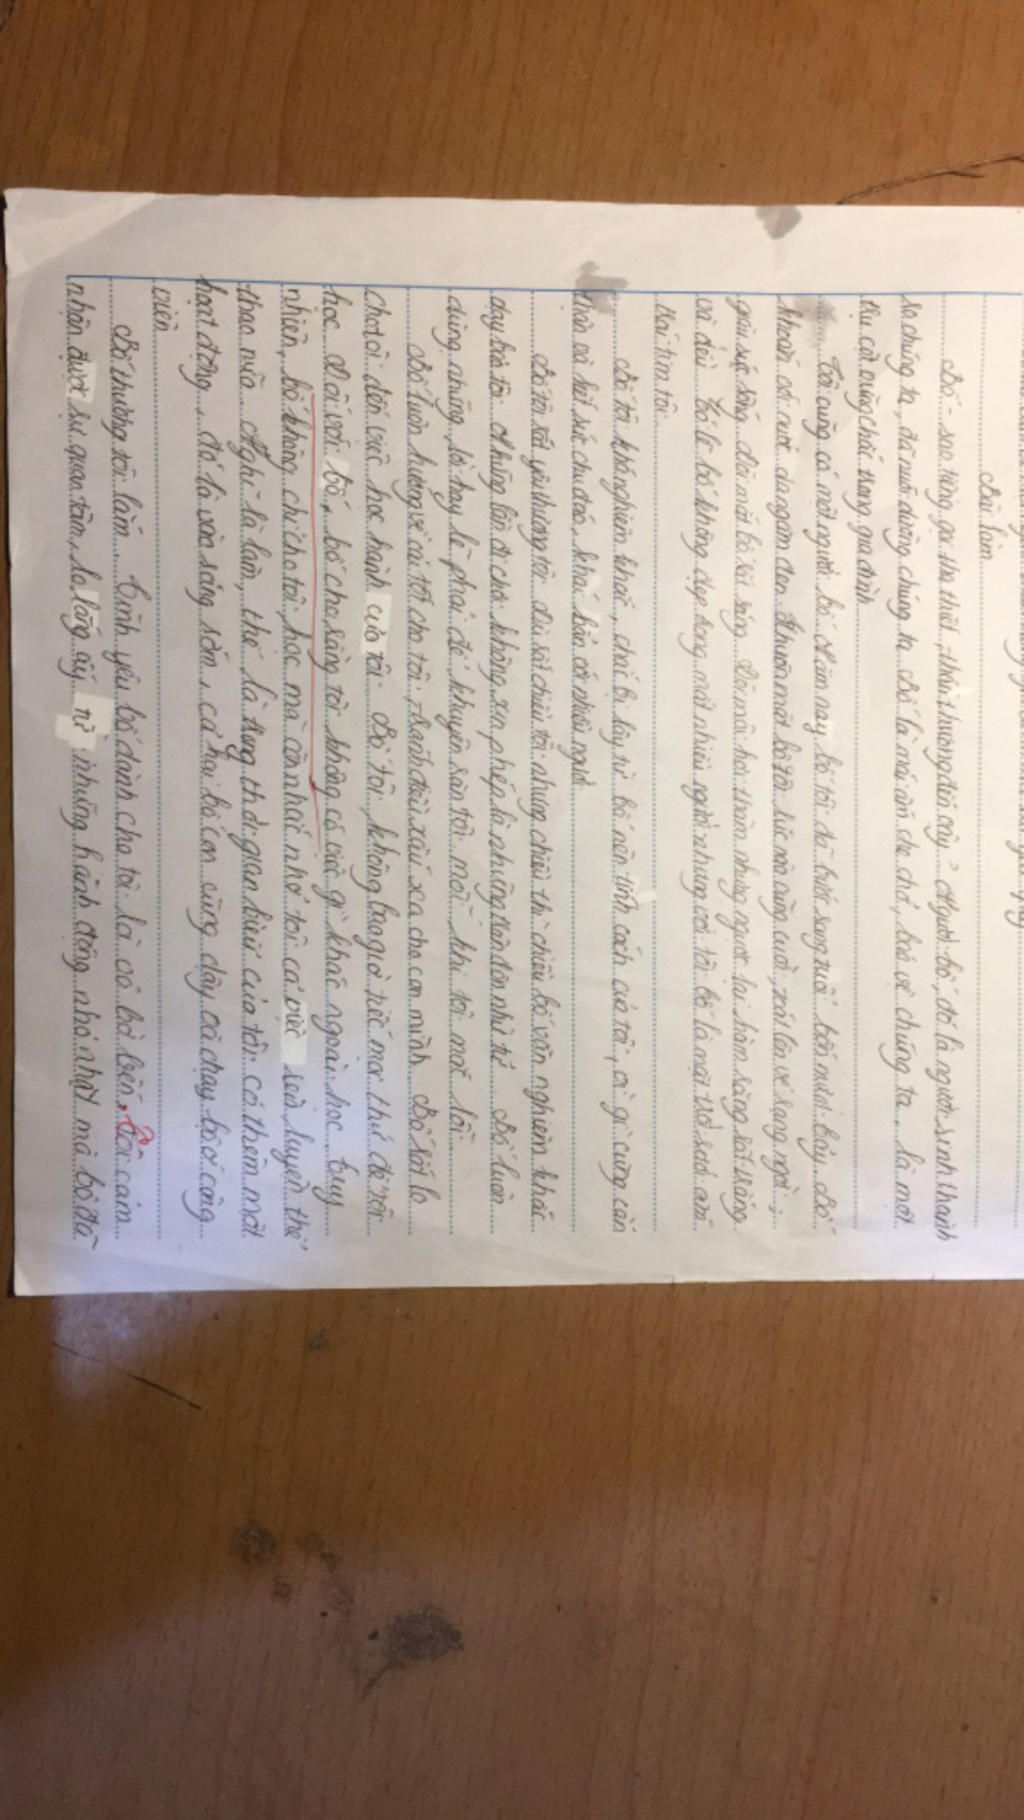 Bài làm
Bố - sao tiếng gọi tha thiết, thân thương đến vậy? Người bố, đó là người sinh thành
ra chúng ta, đã nuôi dưỡng chúng ta. Bố là mái ấm che chở, bảo vệ chúng ta, là một
trụ cột vững chắc trong gia đình
Tôi cũng có một người bố. Năm nay bố tôi đã bước sang tuổi bốn mươi bảy. Bố
khoác với nước da ngăm đen. Khuôn mặt bố tôi lúc nào cũng cười, toát lên vẻ rạng ngời,
giàu sức sống. Đôi mắt bố rất sáng. Đôi môi hơi thâm nhưng ngược lại hàm răng rất trắng
và đều. Có lẽ bố không đẹp trong mắt nhiều người nhưng với tôi bố là một thứ sưởi ấm
trái tim tôi.
Bố tôi khá nghiêm khắc, chắc bị lây từ bố nên tính cách của tôi, cái gì cũng cẩn
thận và hết sức chu đáo, khác hẳn với nhiều người.
Bố tôi rất yêu thương tôi dù rất chiều tôi nhưng chiều thì chiều bố vẫn nghiêm khắc
dạy bảo tôi. Những lần đi chơi không xin phép là những lần đòn nhừ tử. Bố luôn
dùng những lời hay lẽ phải để khuyên răn tôi mỗi khi tôi mắc lỗi.
Bố luôn hướng về cái tốt cho tôi, tránh điều xấu xa cho con mình. Bố rất lo
cho tôi đến việc học hành của tôi. Bố tôi không bao giờ tiếc mọi thứ để tôi
học. Đối với bố, bố cho rằng tôi không có việc gì khác ngoài học. Tuy
nhiên, bố không chỉ cho tôi học mà còn nhắc nhở tôi cả việc rèn luyện thể
thao nữa. Nghĩ là làm, thế là trong thời gian biểu của tôi có thêm một
hoạt động, đó là vào sáng sớm, cả hai bố con cùng dậy và chạy bộ ở công
viên.
Bố thương tôi lắm. Tình yêu bố dành cho tôi là vô bờ bến. Tôi cảm
nhận được sự quan tâm, lo lắng ấy từ những hành động nhỏ nhặt mà bố đã